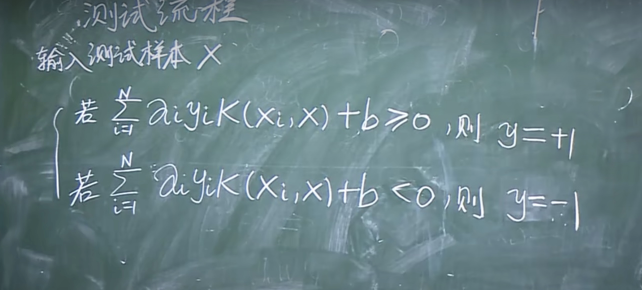 测试流程
输入测试样本 X
若 ∑_{i=1}^{N} α_i y_i K(x_i, x) + b ≥ 0, 则 y = +1
若 ∑_{i=1}^{N} α_i y_i K(x_i, x) + b < 0, 则 y = -1